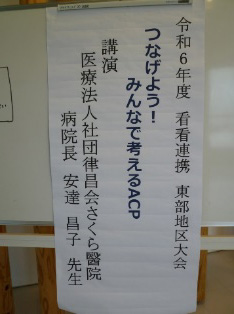 令和6年度 看看連携 東部地区大会
つなげよう!
みんなで考えるACP
講演
医療法人社団律昌会さくら醫院
病院長 安達 昌子 先生